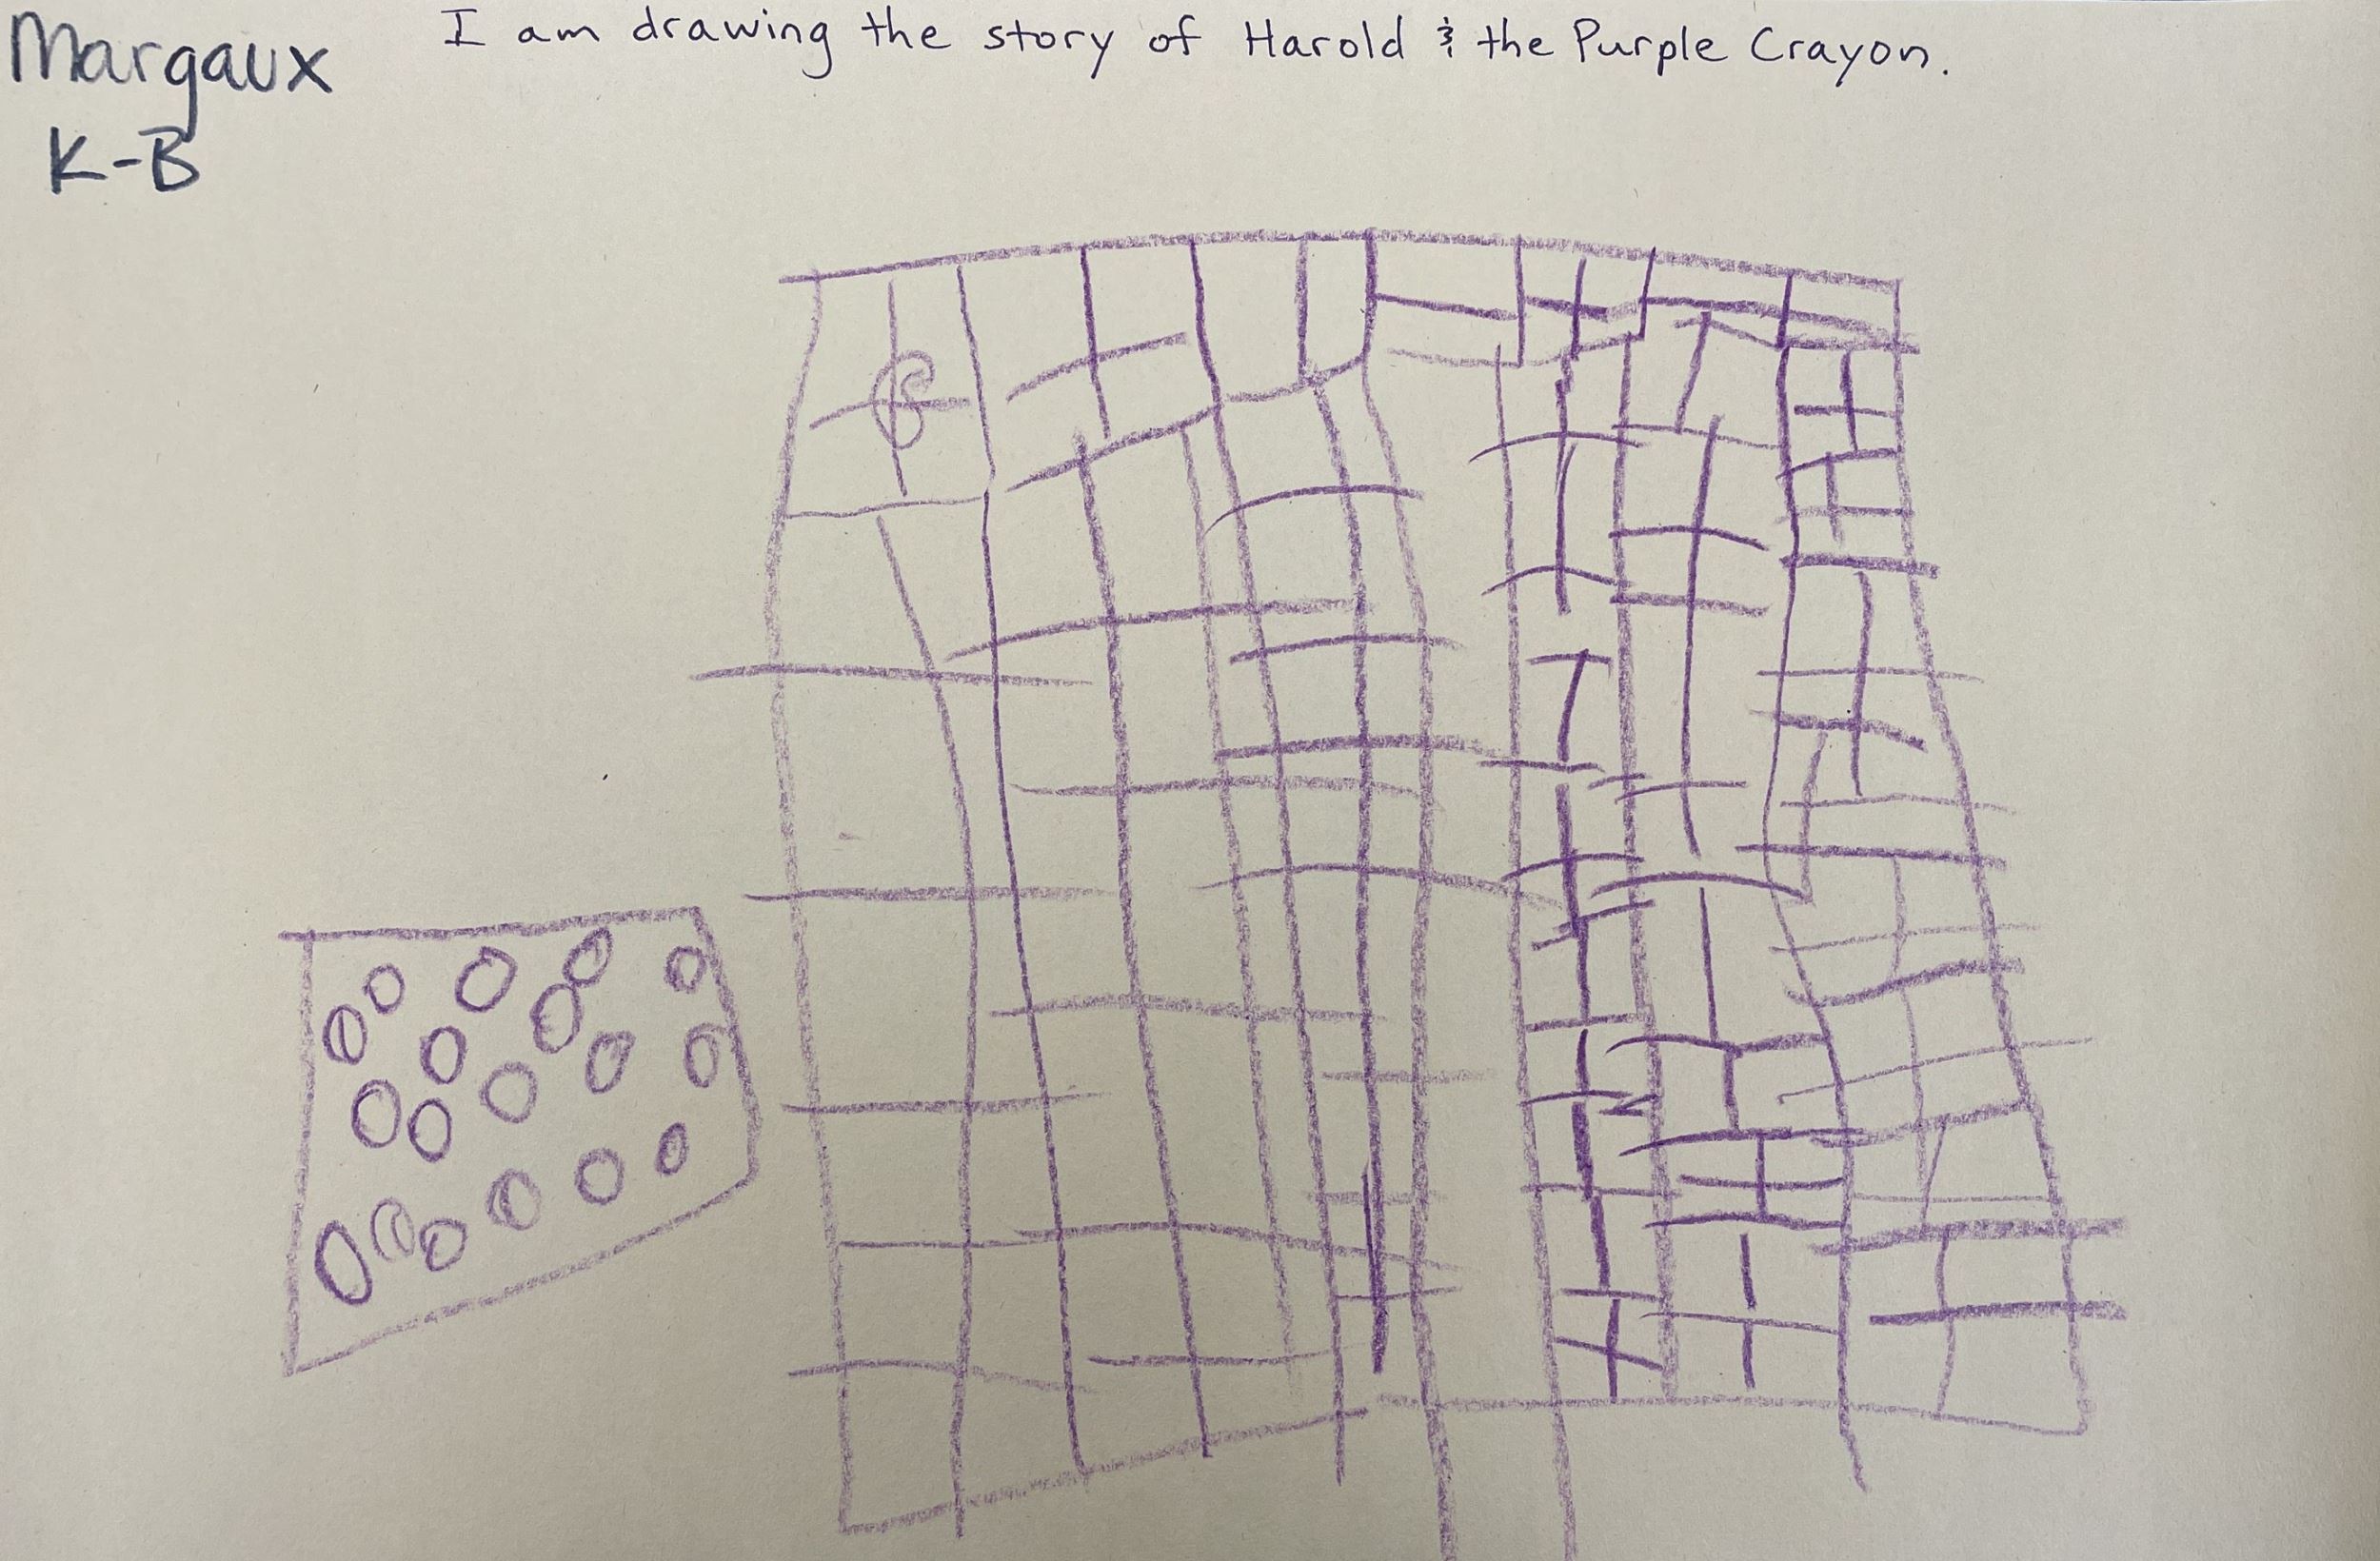 Margaux
K-B
I am drawing the story of Harold & the Purple Crayon.